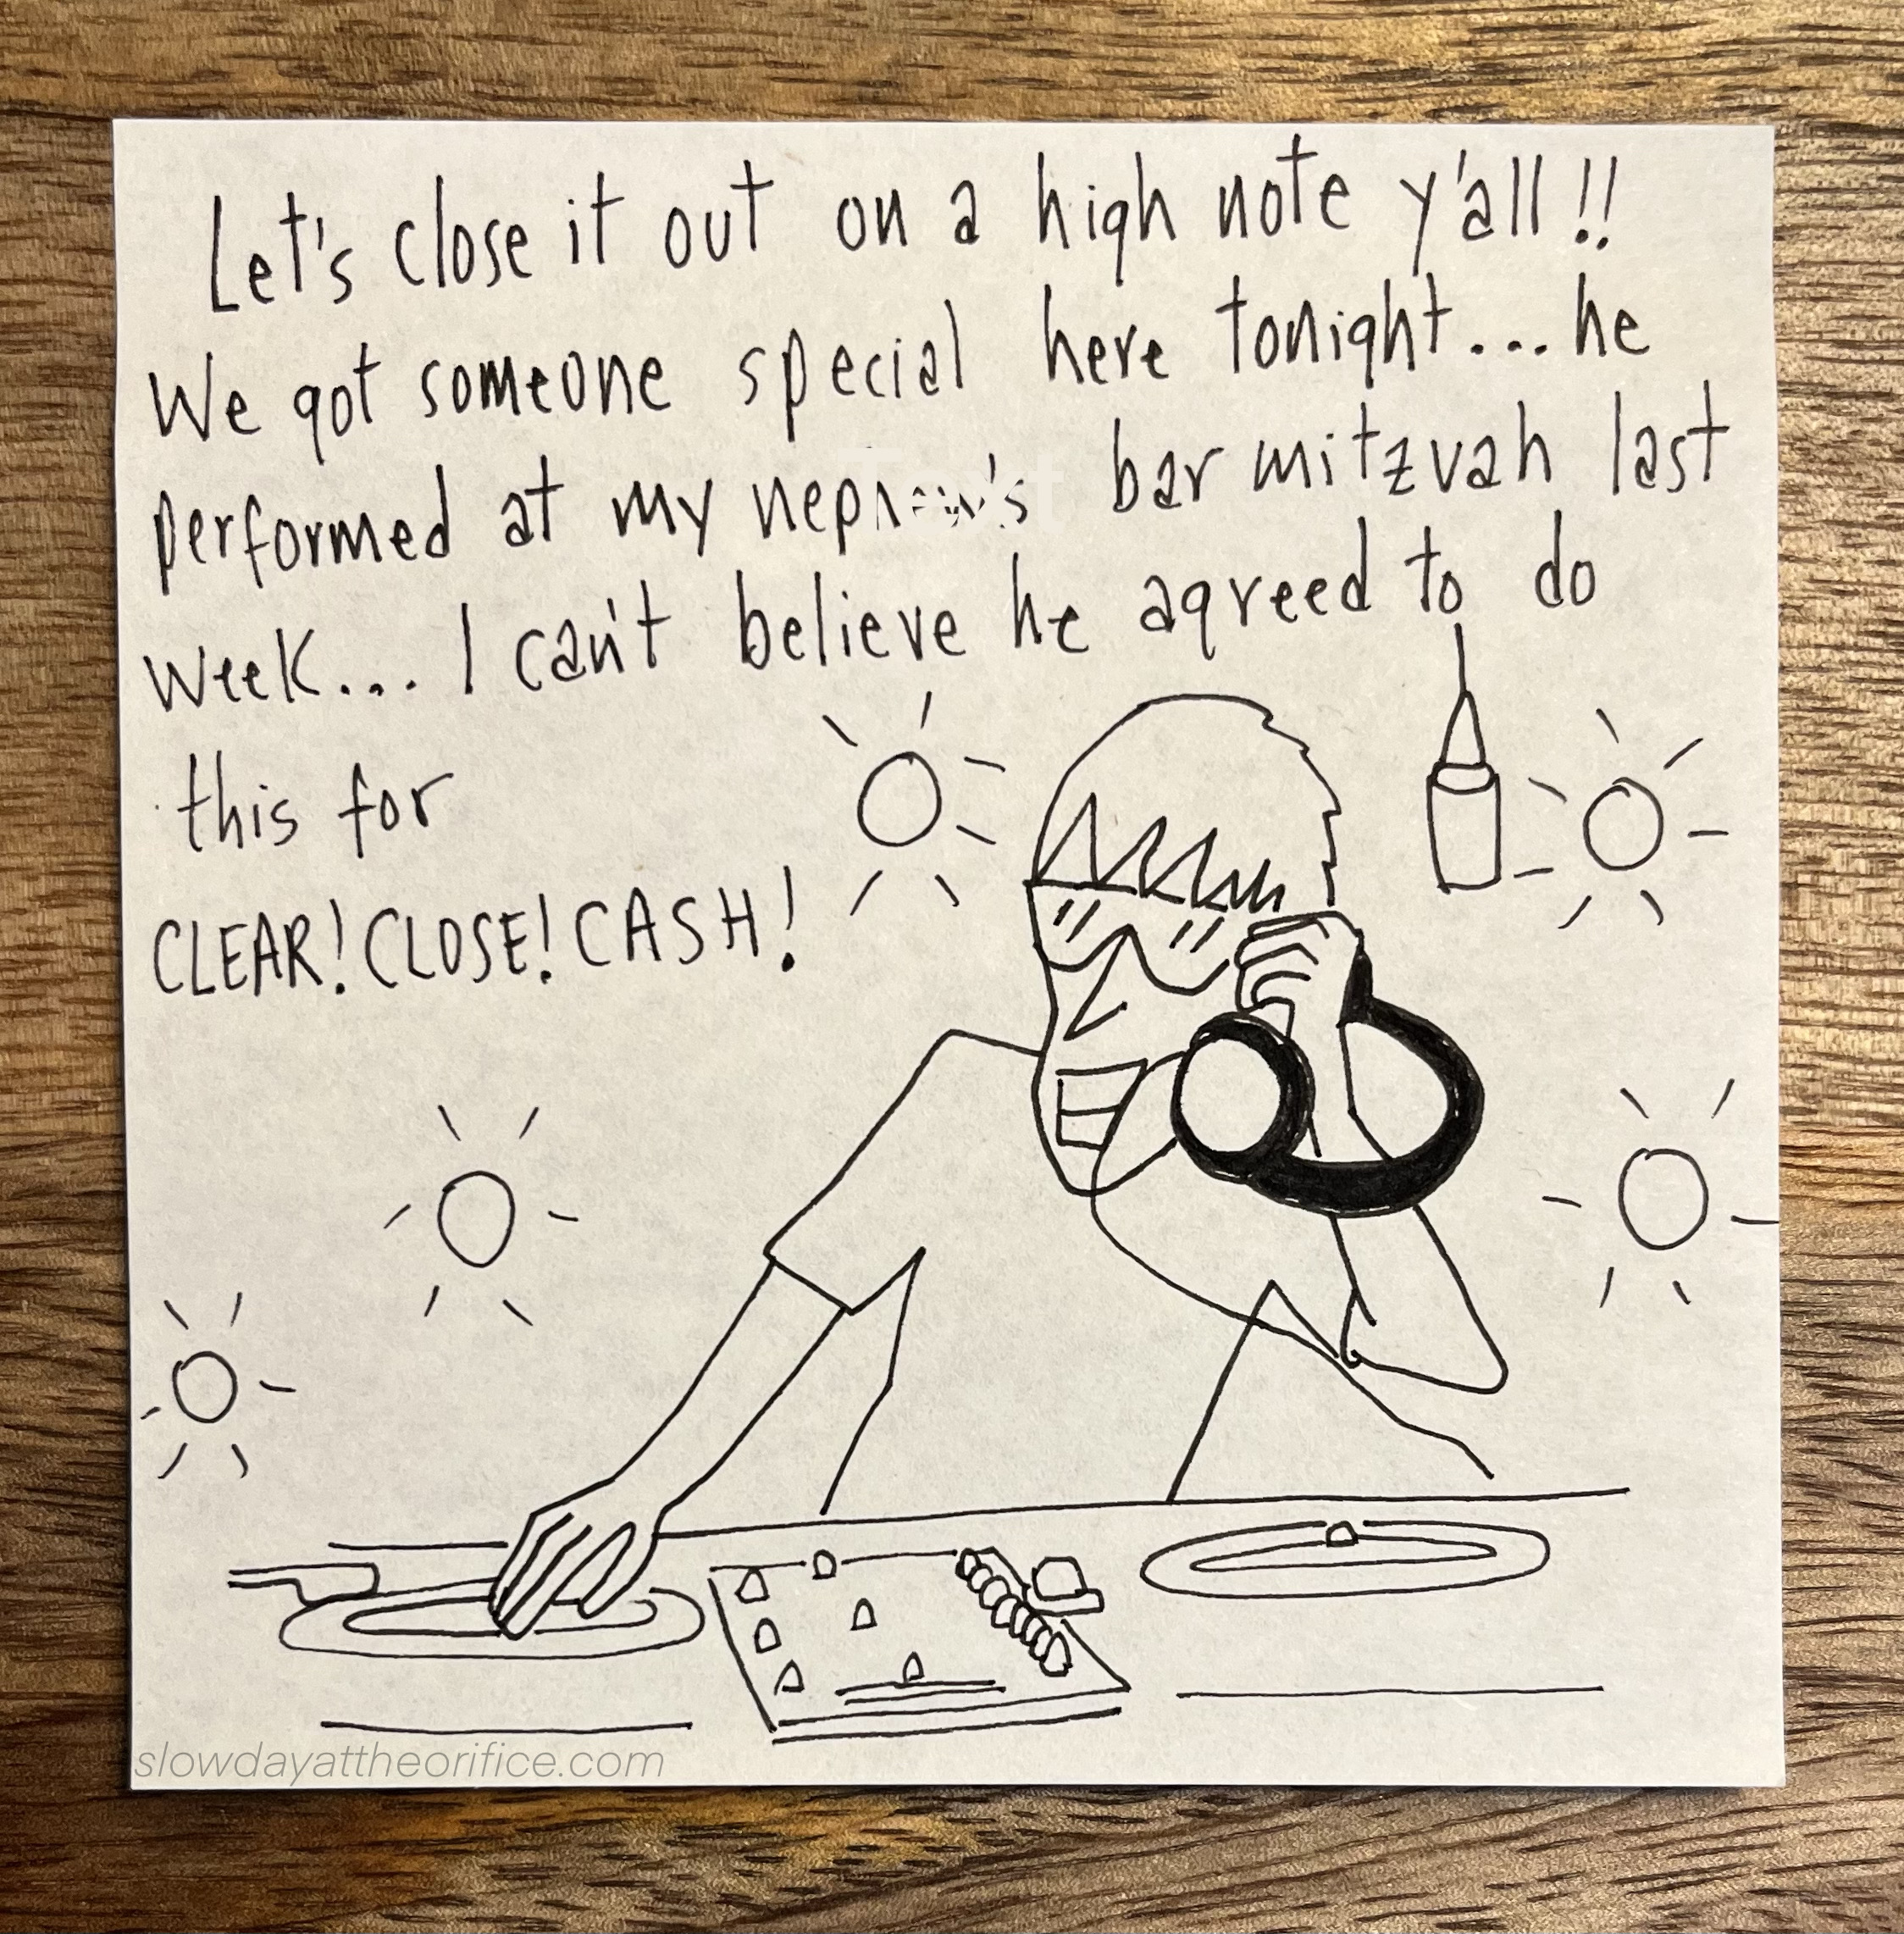 Let's close it out on a high note y'all!!
We got someone special here tonight... he
performed at my nephew's bar mitzvah last
week... I can't believe he agreed to do
this for
CLEAR! CLOSE! CASH!
slowdayattheorifice.com